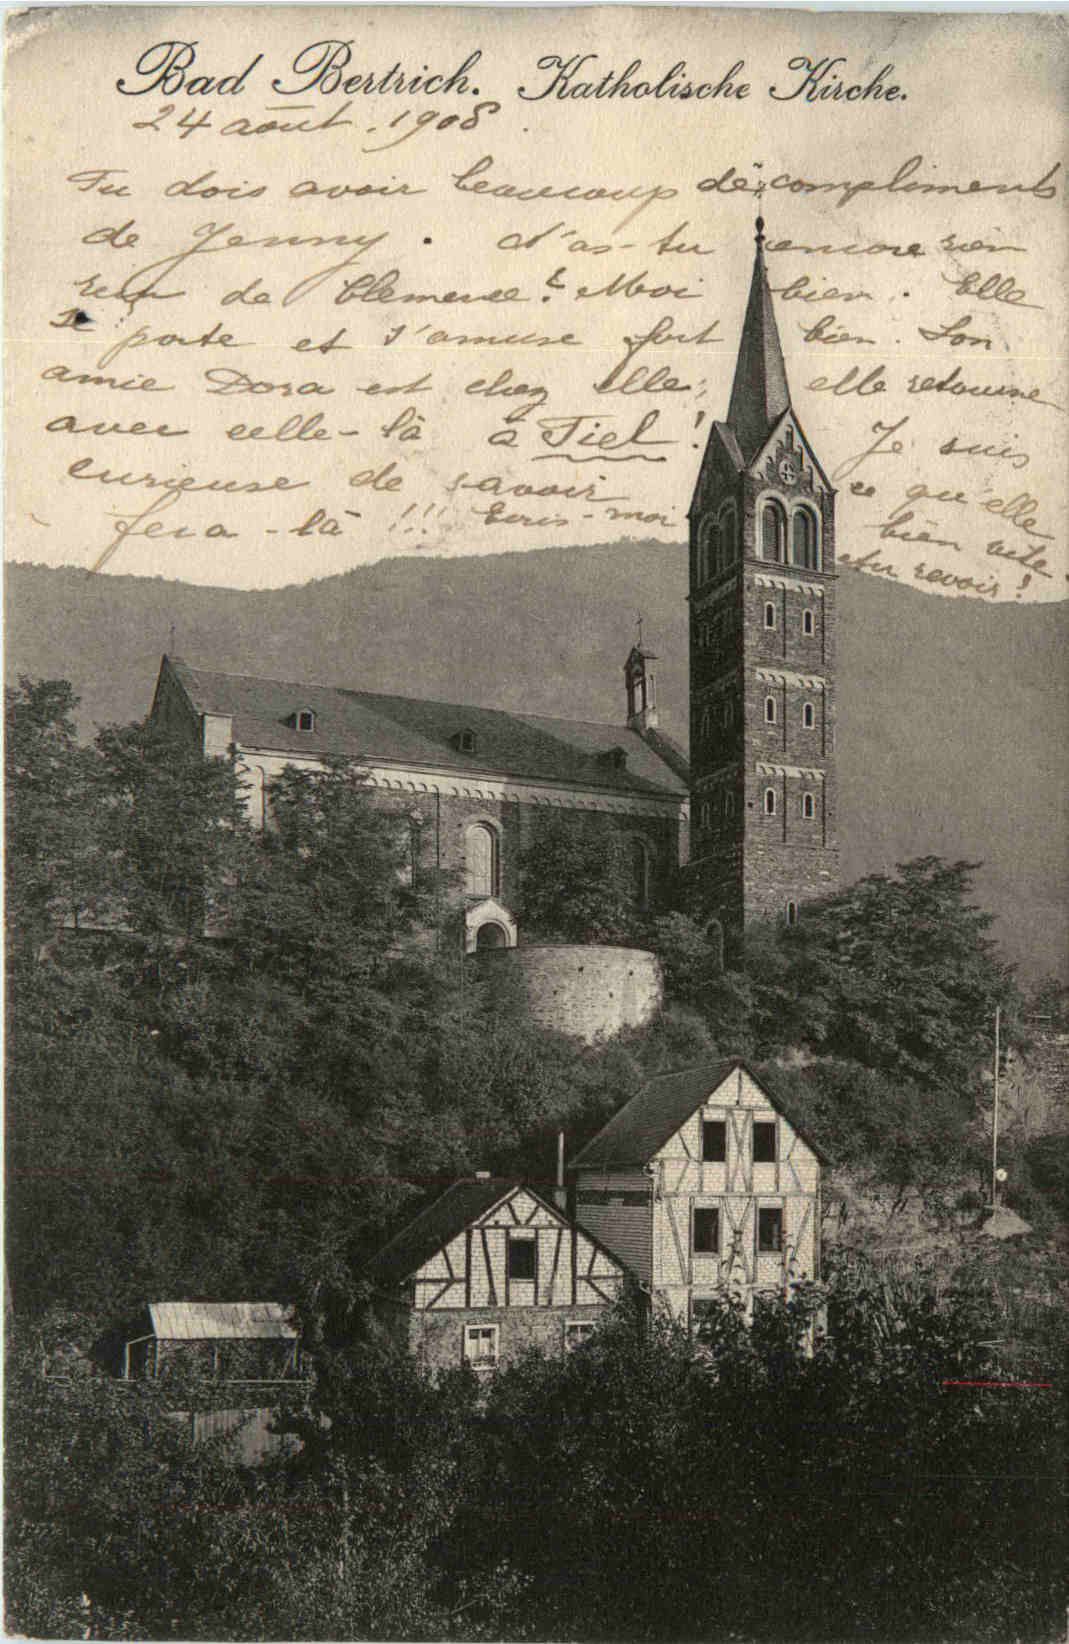 Bad Bertrich. Katholische Kirche.
24 août. 1908.
Tu dois avoir beaucoup de compliments
de Jenny. N'as-tu encore rien
reçu de Clémence? Moi bien. Elle
se porte et s'amuse fort bien. Son
amie Dora est chez elle; elle retourne
avec celle-là à Tiel! Je suis
curieuse de savoir ce qu'elle
fera-là!!! Ecris-moi bien vite.
Au revoir!